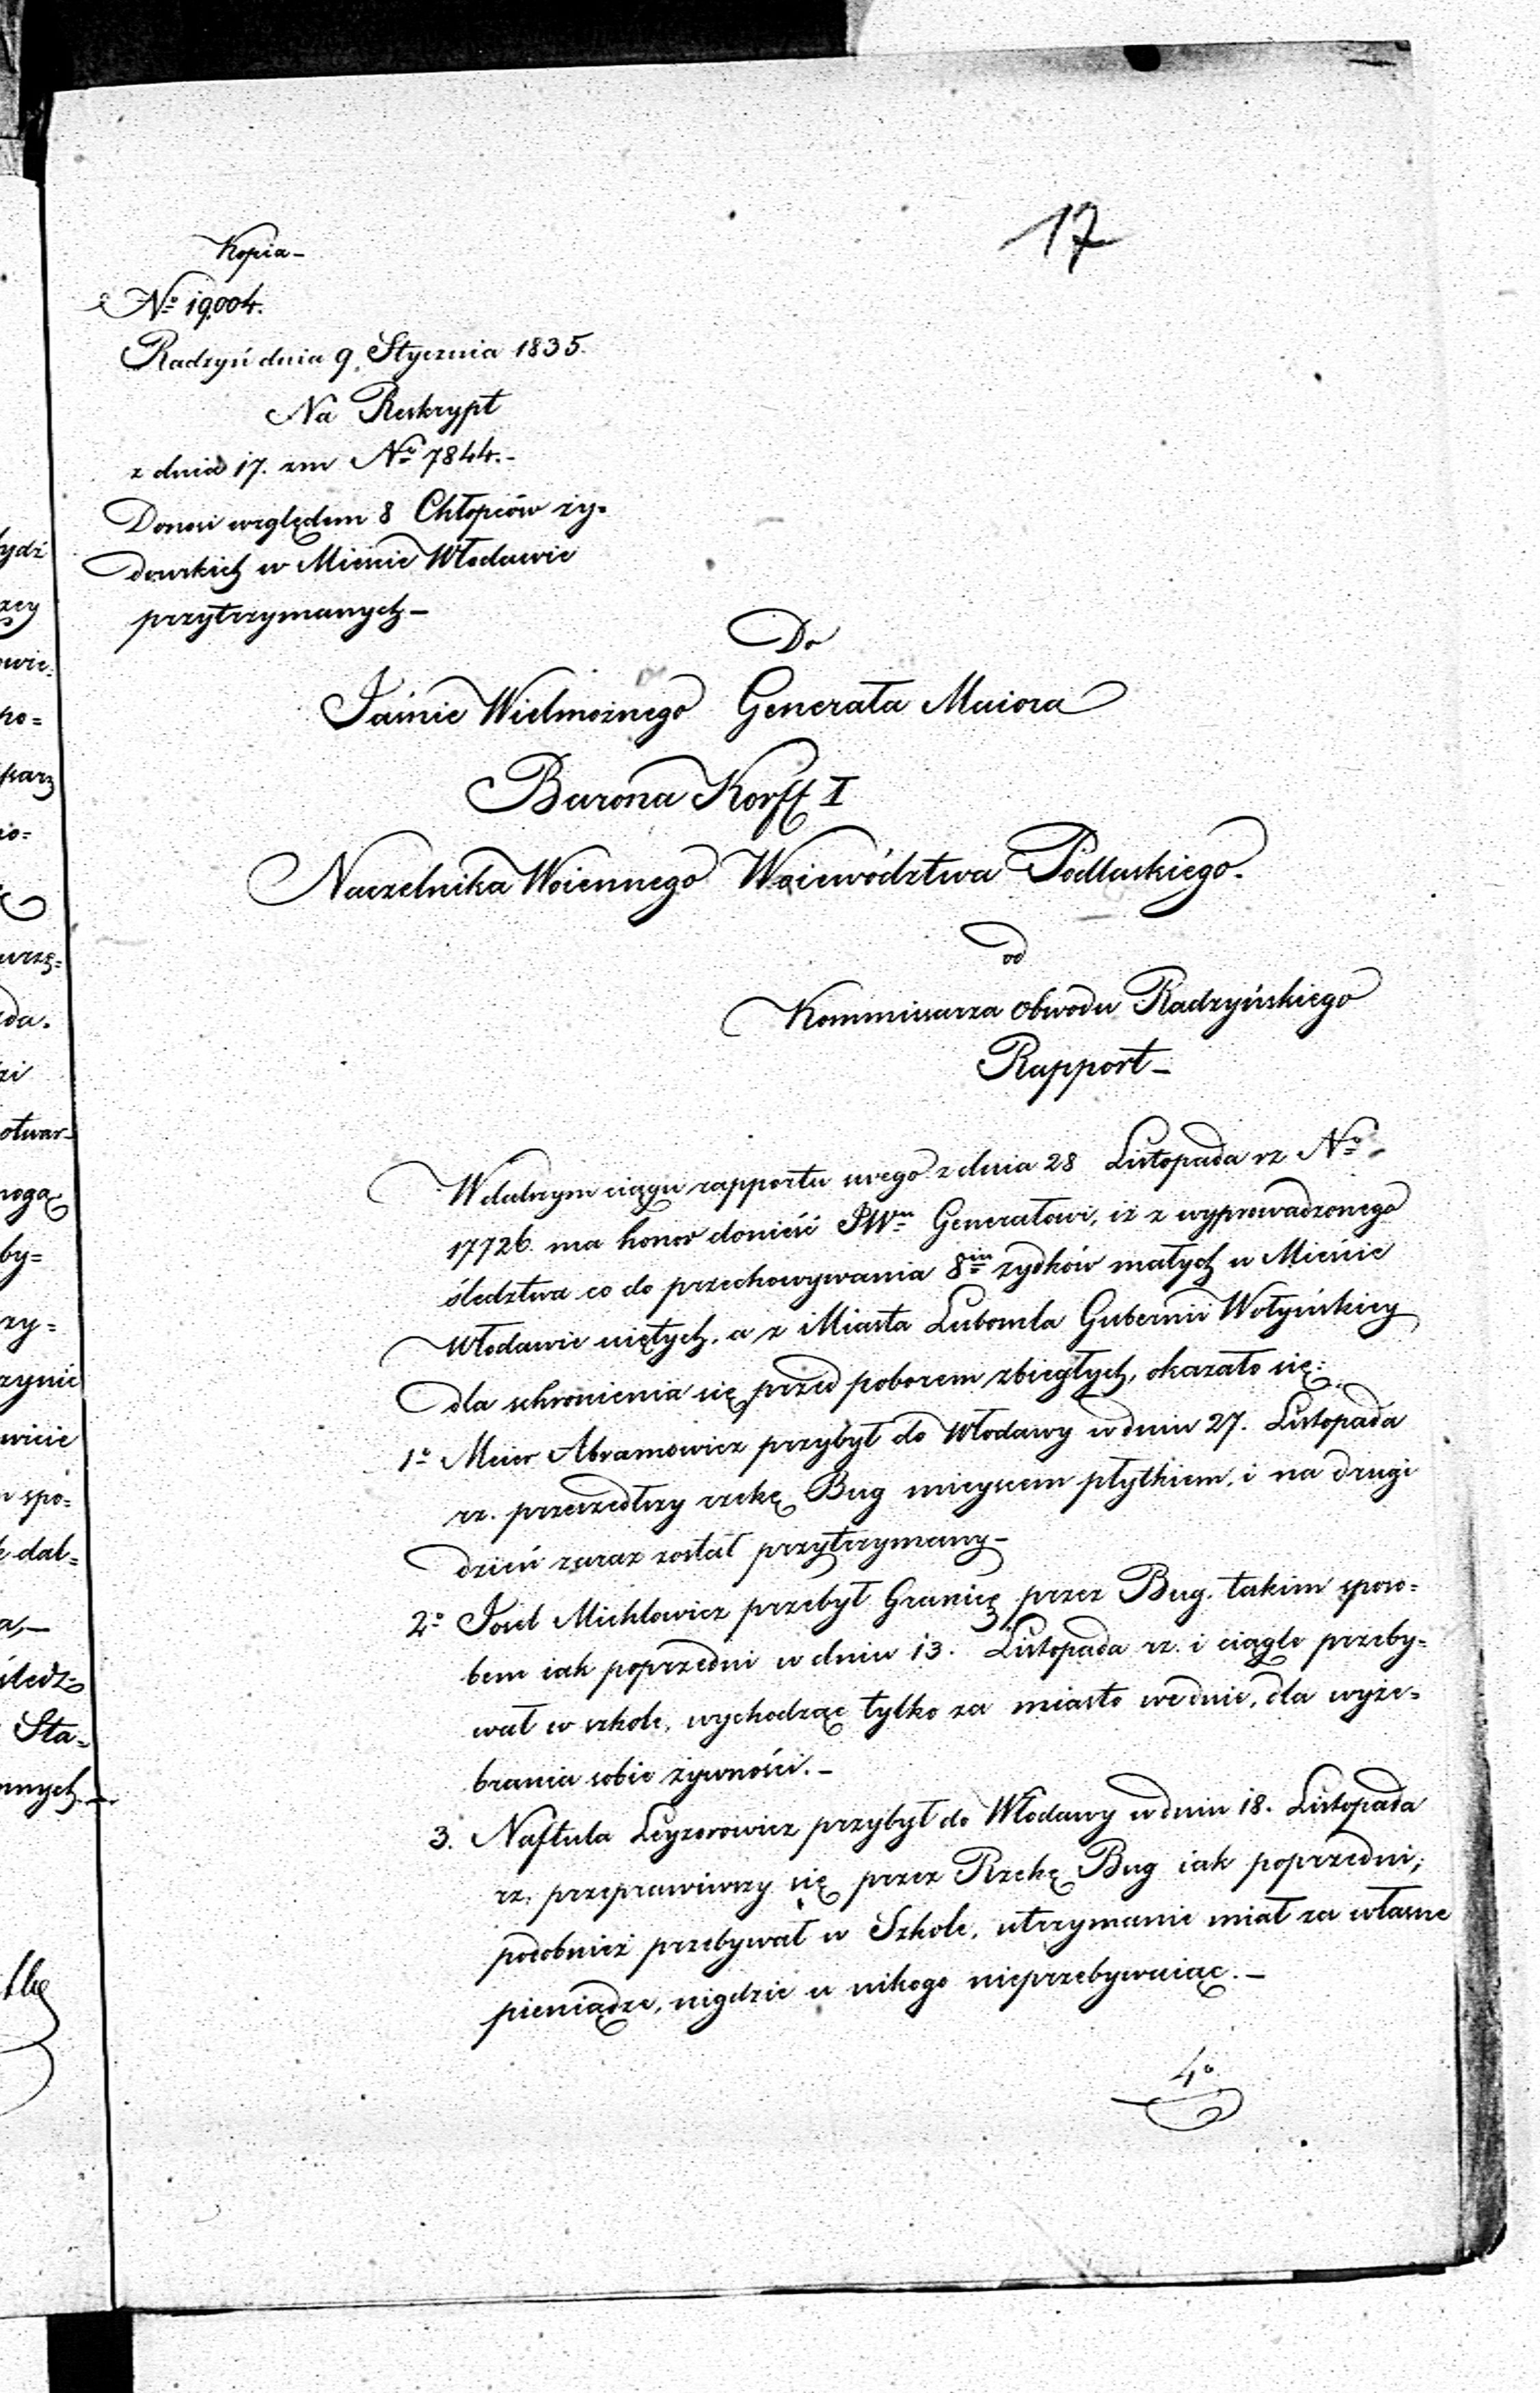 17
Kopia-
No 19,004.
Radzyń dnia 9 Stycznia 1835.
Na Reskrypt
z dnia 17. zm No 7844.-
Donosi względem 8 Chłopców ży-
dowskich w Mieście Włodawie
przytrzymanych-
Do
Jaśnie Wielmożnego Generała Maiora
Barona Korff I
Naczelnika Woiennego Woiewództwa Podlaskiego.
od
Kommissarza Obwodu Radzyńskiego
Rapport-
W dalszym ciągu rapportu swego z dnia 28 Listopada rz No
17726. ma honor donieść JWmu Generałowi, iż z wyprowadzonego
śledztwa co do przechowywania 8miu żydków małych w Mieście
Włodawie uiętych, a z Miasta Lubomla Gubernii Wołyńskiey
dla schronienia się przed poborem zbiegłych, okazało się:
1o Meier Abramowicz przybył do Włodawy w dniu 27. Listopada
rz. przeszedłszy rzekę Bug mieyscem płytkiem, i na drugi
dzień zaraz został przytrzymany-
2o Josel Michlowicz przebył Granicę przez Bug. takim sposo-
bem iak poprzedni w dniu 13. Listopada rz. i ciągle przeby-
wał w szkole, wychodząc tylko za miasto we dnie, dla wyże-
brania sobie żywności.-
3. Naftula Leyzorowicz przybył do Włodawy w dniu 18. Listopada
rz. przeprawiwszy się przez Rzekę Bug iak poprzedni;
podobnież przebywał w Szkole, utrzymanie miał za własne
pieniądze, nigdzie u nikogo nieprzebywaiąc.-
4o